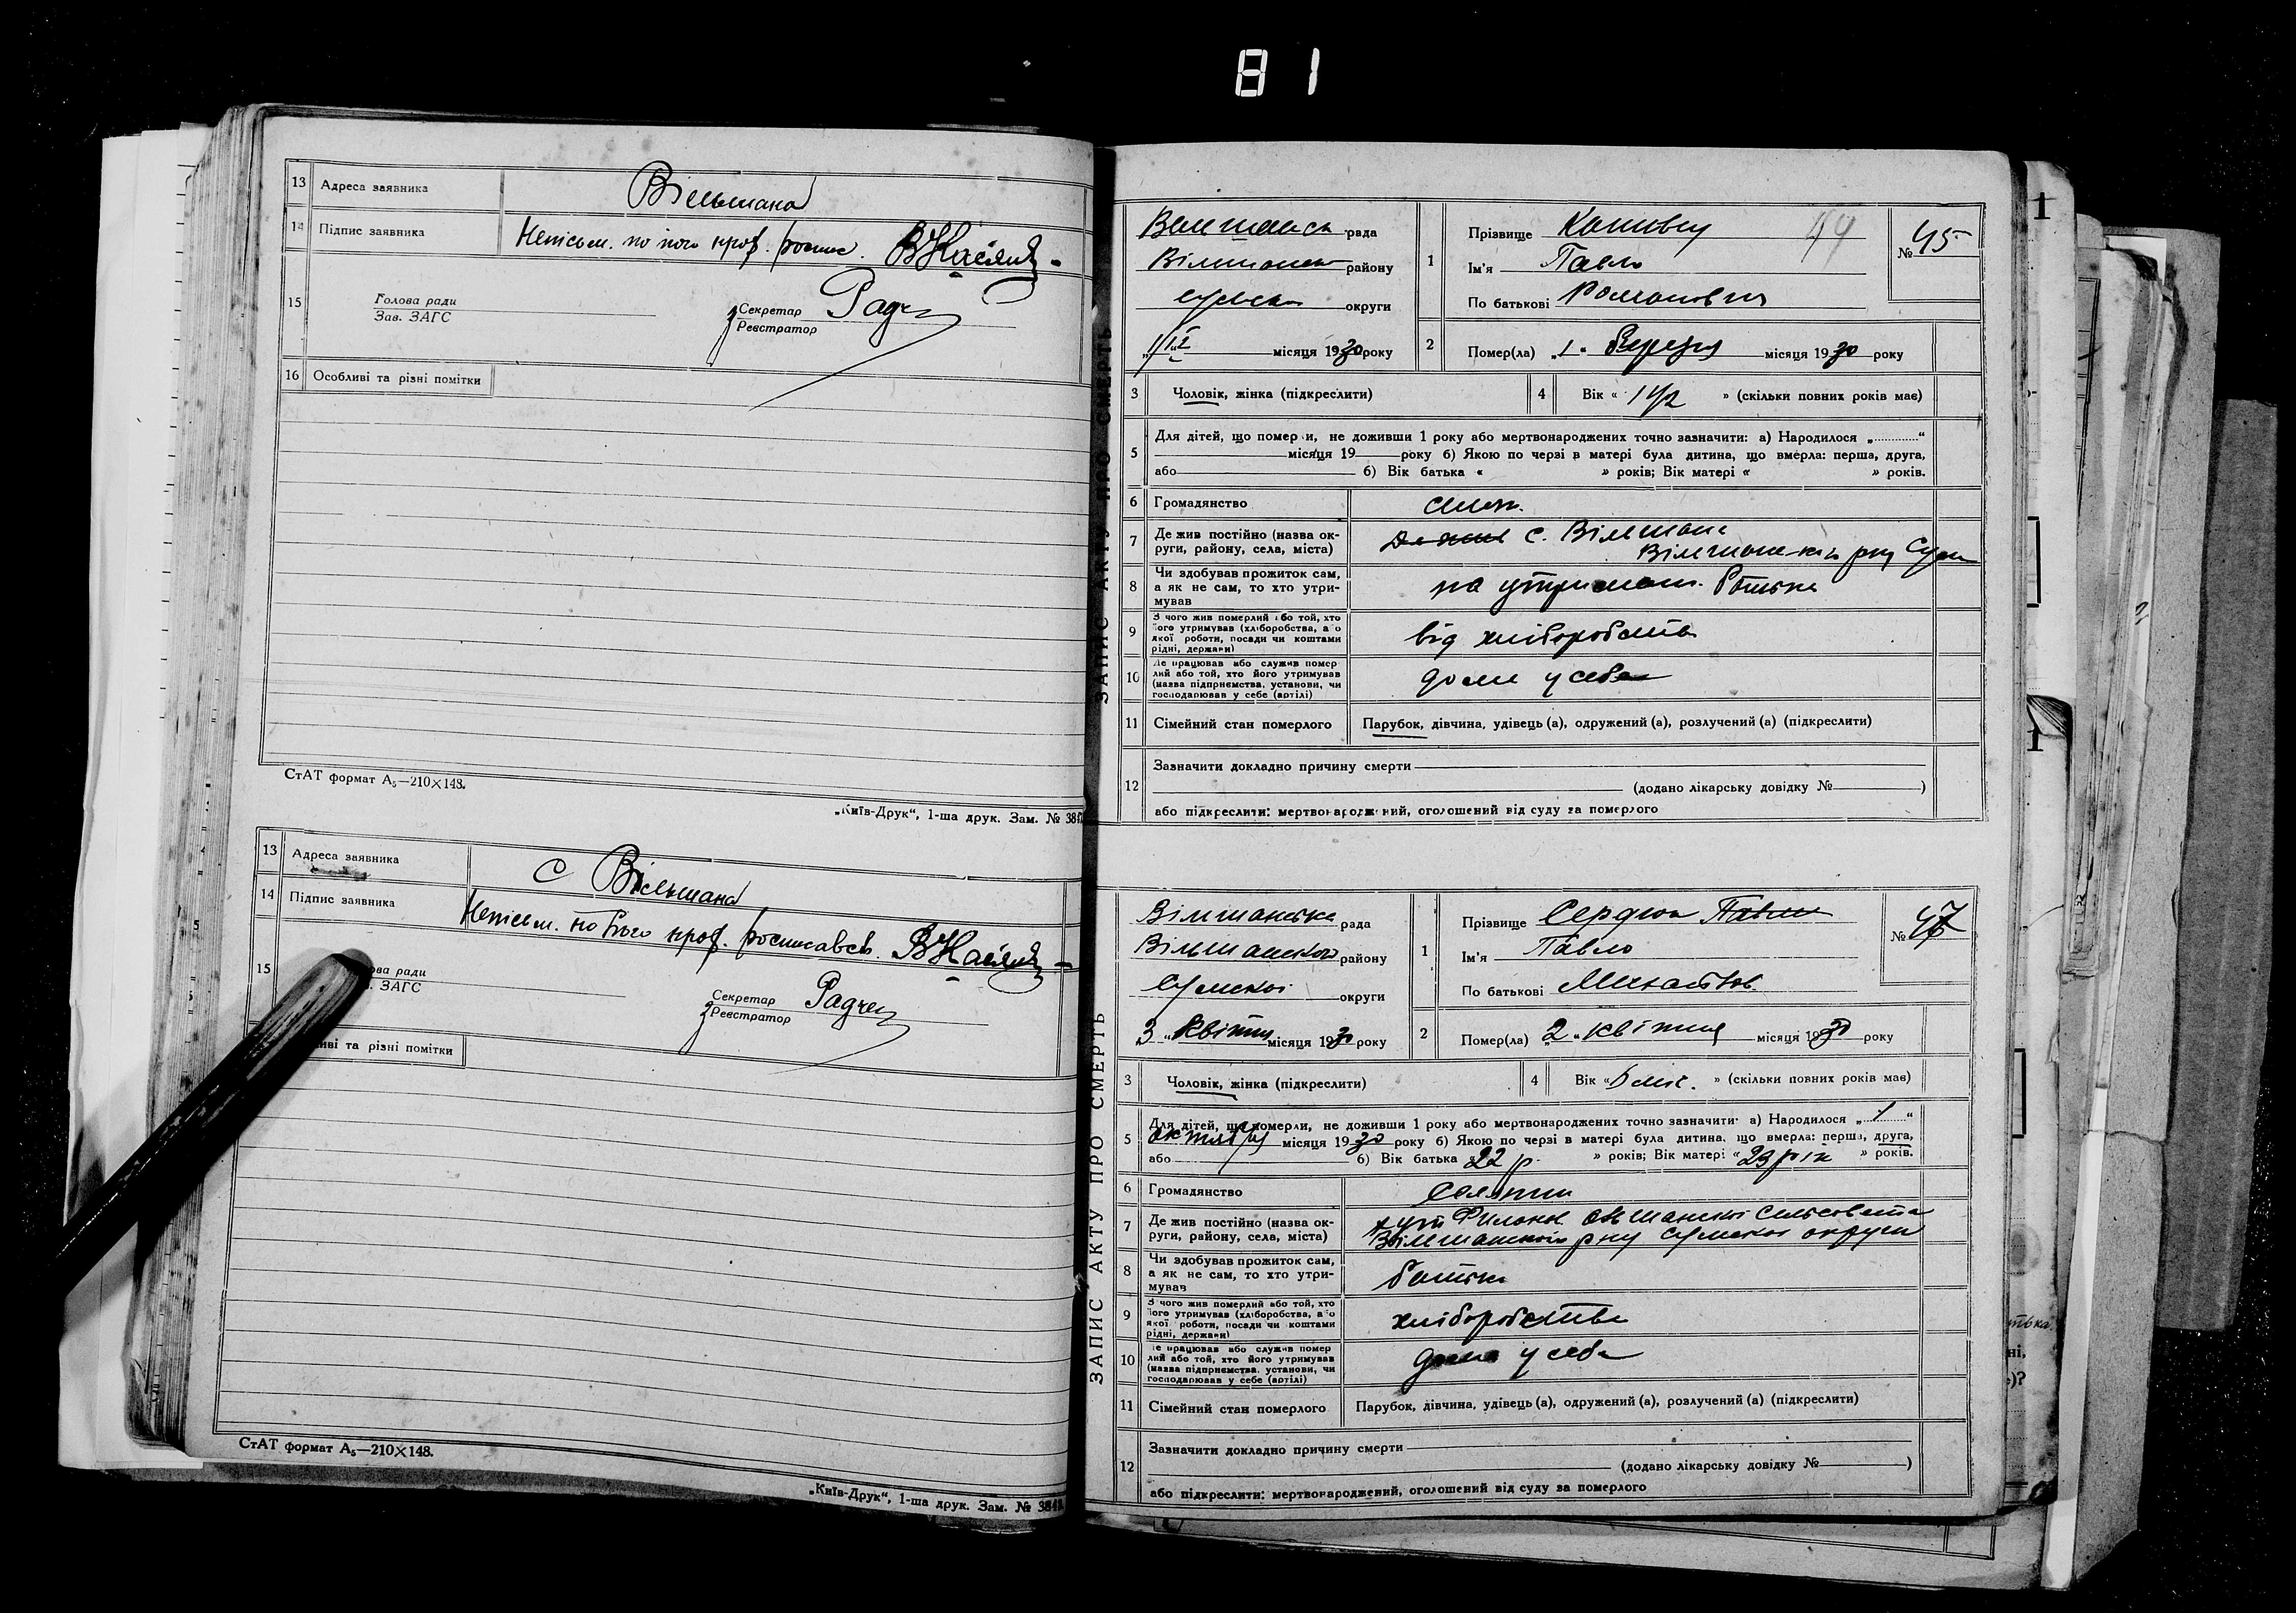 81
13 Адреса заявника Вільшана
14 Підпис заявника Неписьм. по його прос.
15 Голова ради
Зав. ЗАГС
Секретар
Реєстратор
16 Особливі та різні помітки
СтАТ формат А₅—210×148.
„Київ-Друк“, 1-ша друк. Зам. №
13 Адреса заявника с Вільшана
14 Підпис заявника Неписьм. по його прос. росписавсь.
15 ова ради
ЗАГС
Секретар
Реєстратор
иві та різні помітки
СтАТ формат А₅—210×148.
„Київ-Друк“, 1-ша друк. Зам. №
ЗАПИС АКТУ ПРО СМЕРТЬ
рада
району
округи
місяця 1930 року
1 Прізвище
Ім'я Павло
По батькові Романович
44
№ 45
2 Помер(ла) „1“ Березня місяця 1930 року
3 Чоловік, жінка (підкреслити)
4 Вік « 1 1/2 » (скільки повних років має)
5 Для дітей, що померли, не доживши 1 року або мертвонароджених точно зазначити: а) Народилося „ “
місяця 19 року б) Якою по черзі в матері була дитина, що вмерла: перша, друга,
або б) Вік батька « » років; Вік матері « » років.
6 Громадянство
7 Де жив постійно (назва ок-
руги, району, села, міста)
с. Вільшана
8 Чи здобував прожиток сам,
а як не сам, то хто утри-
мував
на утриман. батька
9 З чого жив померлий або той, хто
його утримував (хліборобства, або
якої роботи, посади чи коштами
рідні, держави)
від хліборобства
10 Де працював або служив помер
лий або той, хто його утримував
(назва підприємства, установи, чи
господарював у себе (артілі)
дома у себе
11 Сімейний стан померлого Парубок, дівчина, удівець (а), одружений (а), розлучений (а) (підкреслити)
12 Зазначити докладно причину смерти
(додано лікарську довідку № )
або підкреслити: мертвонароджений, оголошений від суду за померлого
ЗАПИС АКТУ ПРО СМЕРТЬ
Вільшанська рада
Вільшанского району
Сумської округи
3 „Квітня місяця 1930 року
1 Прізвище Сердюк
Ім'я Павло
По батькові
№ 47
2 Помер(ла) „2“ квітня місяця 1930 року
3 Чоловік, жінка (підкреслити)
4 Вік « 6 міс. » (скільки повних років має)
5 Для дітей, що померли, не доживши 1 року або мертвонароджених точно зазначити: а) Народилося „ 1 “
октября місяця 1930 року б) Якою по черзі в матері була дитина, що вмерла: перша, друга,
або б) Вік батька « 22 р. » років; Вік матері « 23 рік » років.
6 Громадянство Селянин
7 Де жив постійно (назва ок-
руги, району, села, міста)
Вільшанского р-ну Сумської округи
8 Чи здобував прожиток сам,
а як не сам, то хто утри-
мував
батька
9 З чого жив померлий або той, хто
його утримував (хліборобства, або
якої роботи, посади чи коштами
рідні, держави)
хліборобства
10 Де працював або служив помер
лий або той, хто його утримував
(назва підприємства, установи, чи
господарював у себе (артілі)
дома у себе
11 Сімейний стан померлого Парубок, дівчина, удівець (а), одружений (а), розлучений (а) (підкреслити)
12 Зазначити докладно причину смерти
(додано лікарську довідку № )
або підкреслити: мертвонароджений, оголошений від суду за померлого